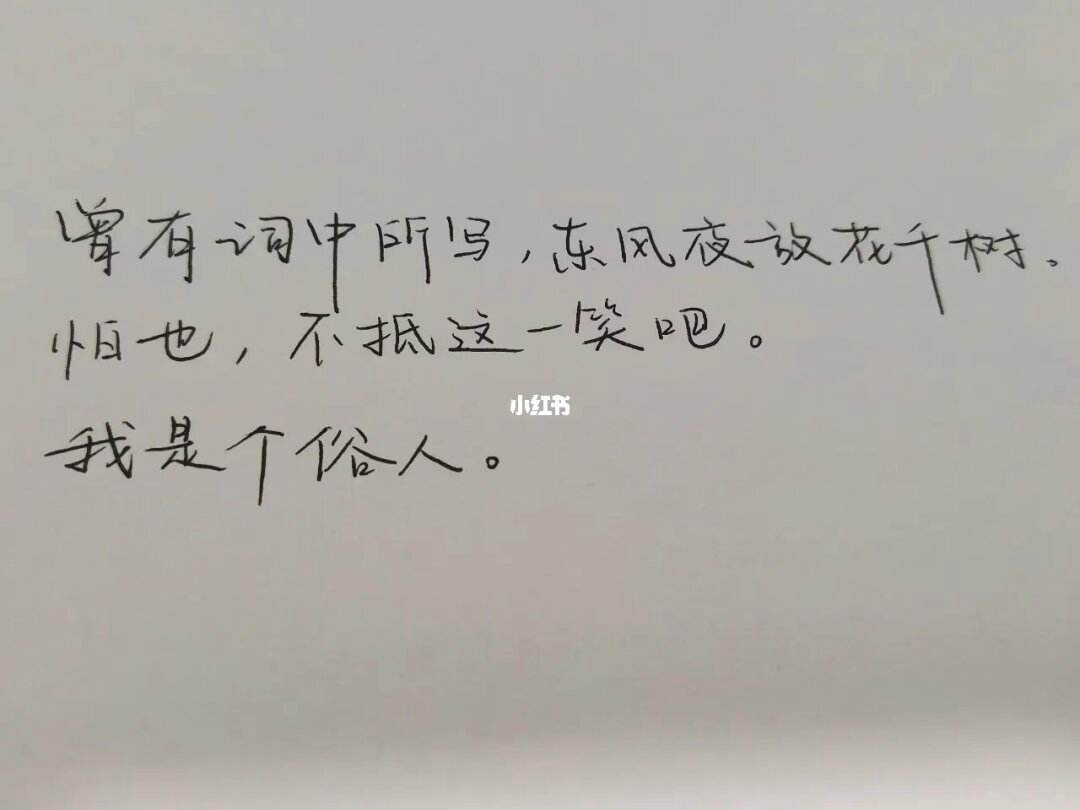 曾有词中所写,东风夜放花千树、
怕也,不抵这一笑吧。
小红书
我是个俗人。